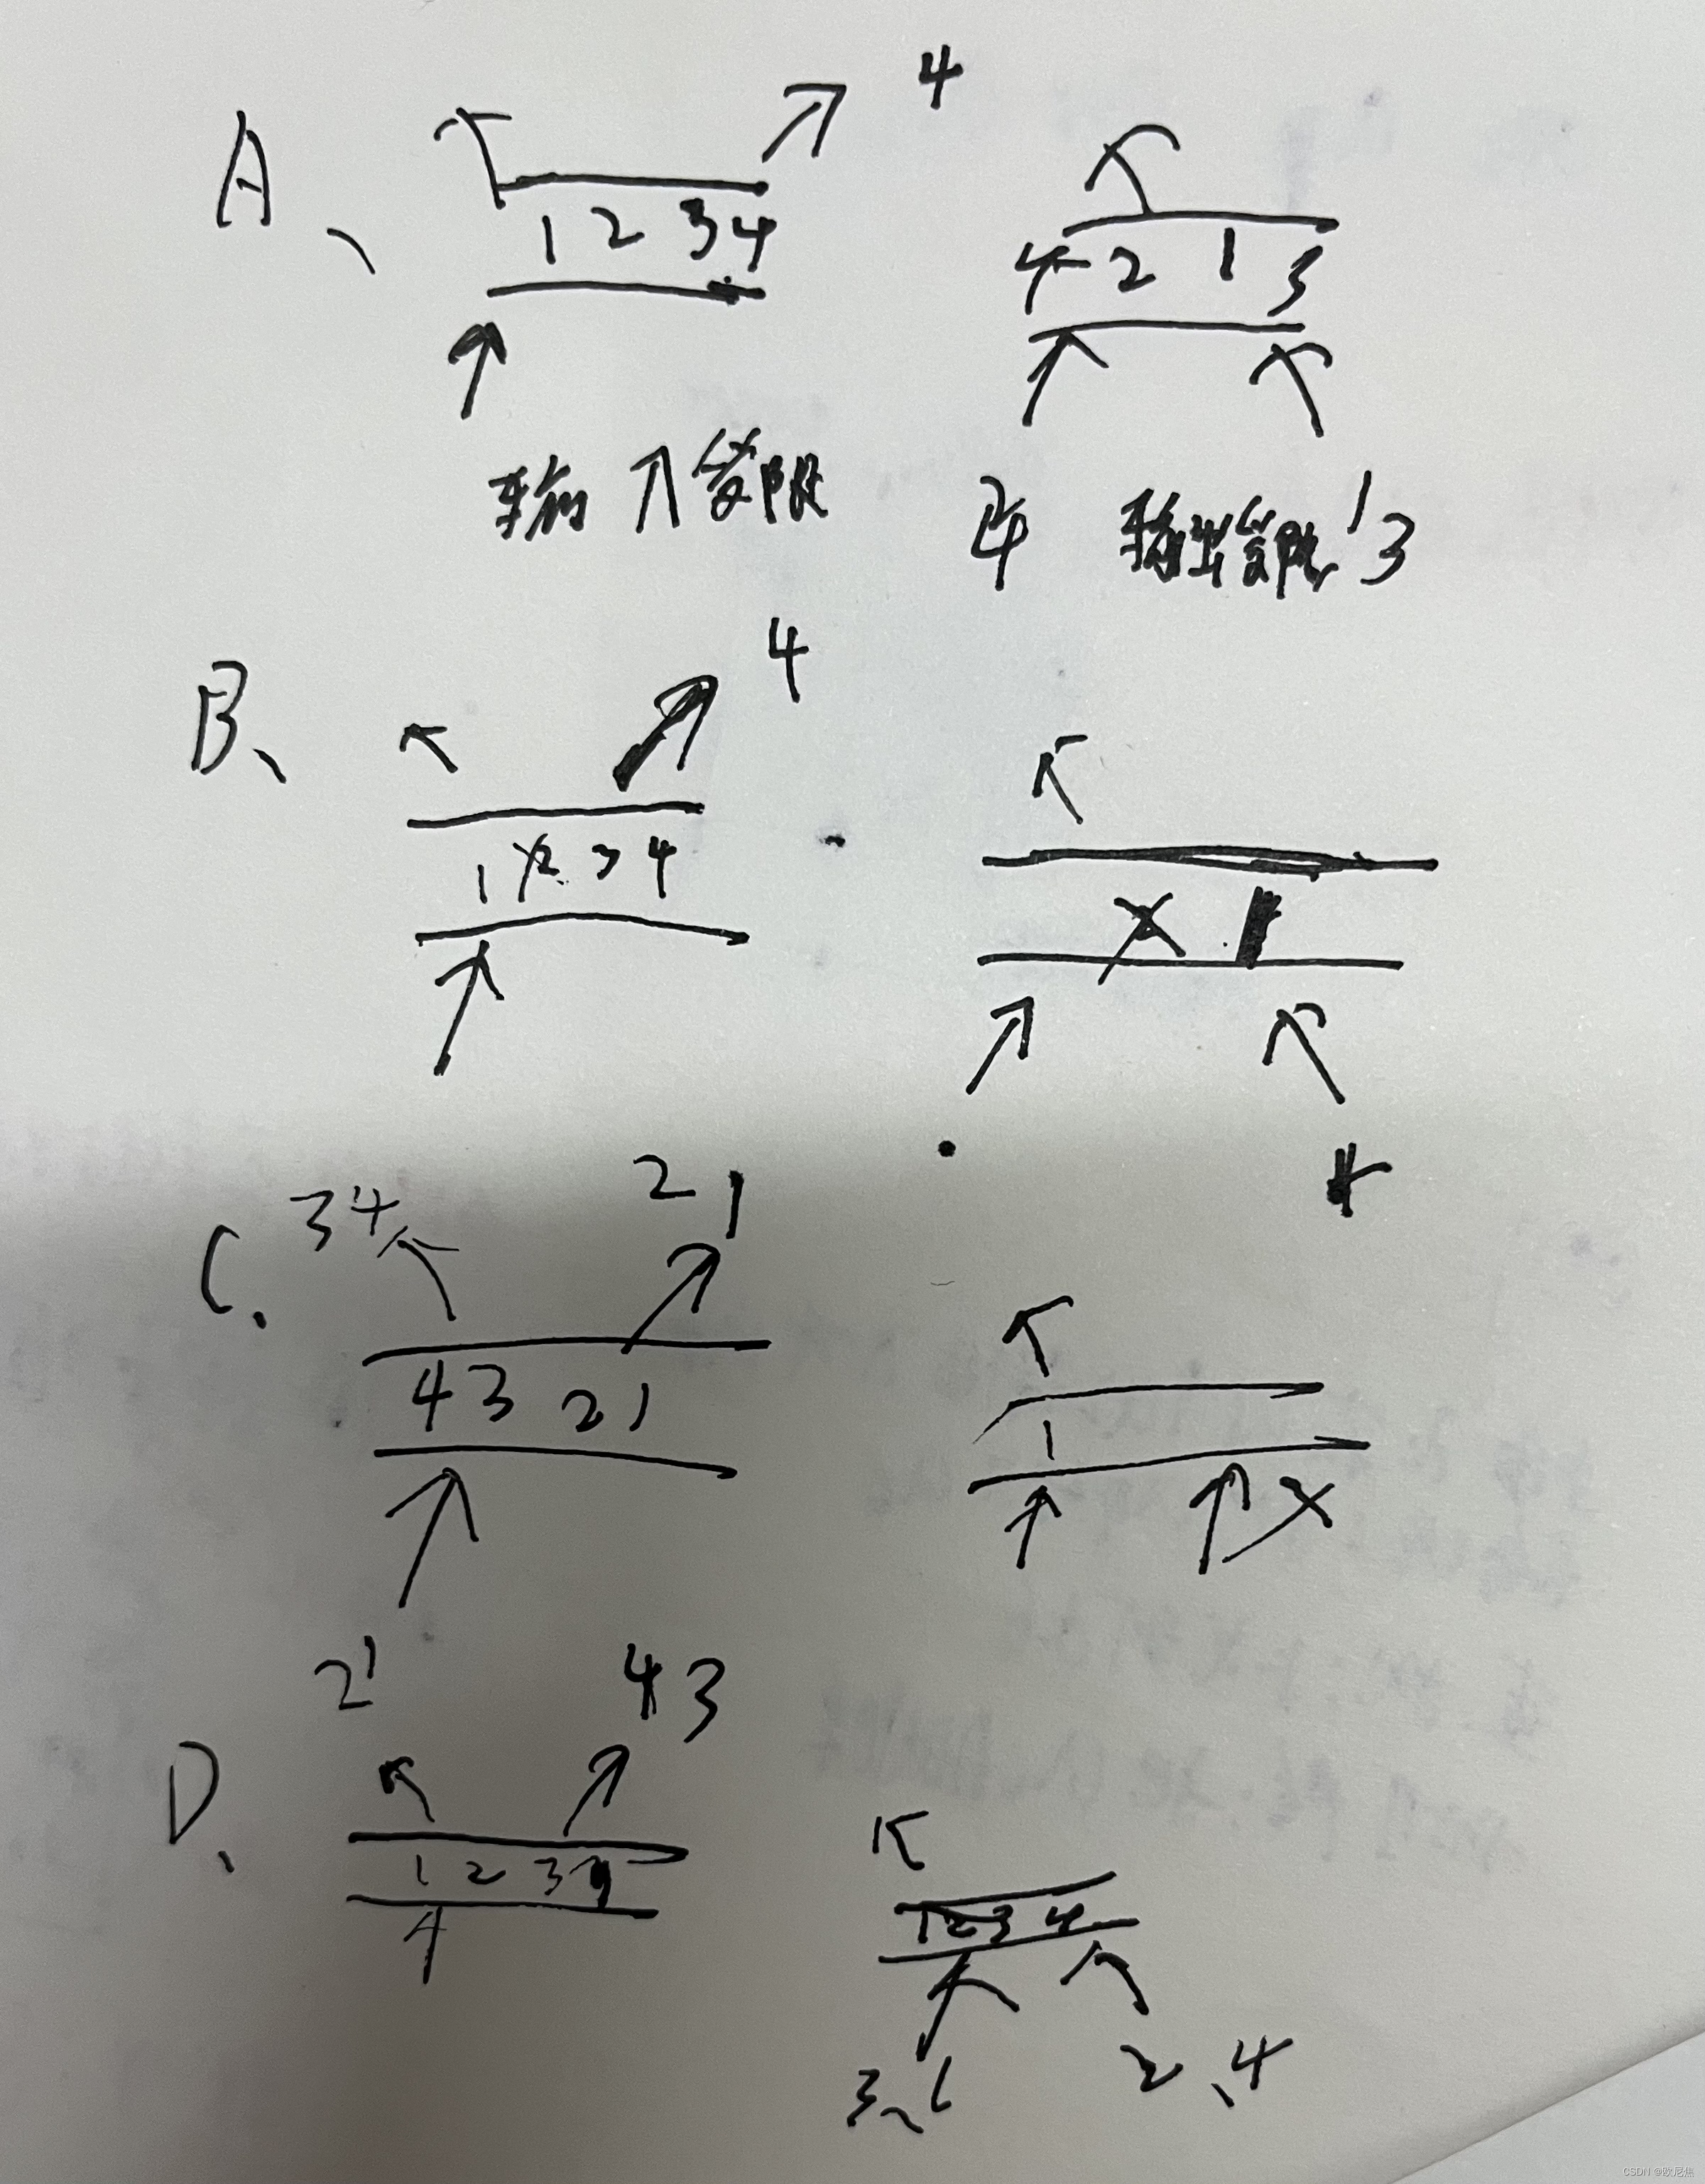 A、
4
1 2 3 4
4 2 1 3
输入受限
输出受限 1 3
B、
4
1 2 3 4
1
4
C.
3 4
2 1
4 3 2 1
1
2 1
4 3
D.
1 2 3 4
1 2 3 4
2、4
CSDN @欧尼焦